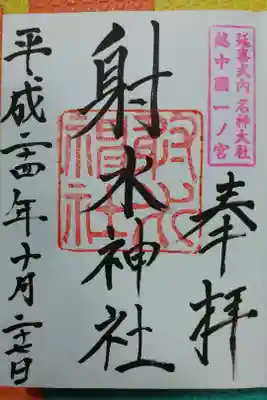 延喜式内名神大社
越中國一ノ宮
奉拝
射水神社
平成二十四年十月二十七日